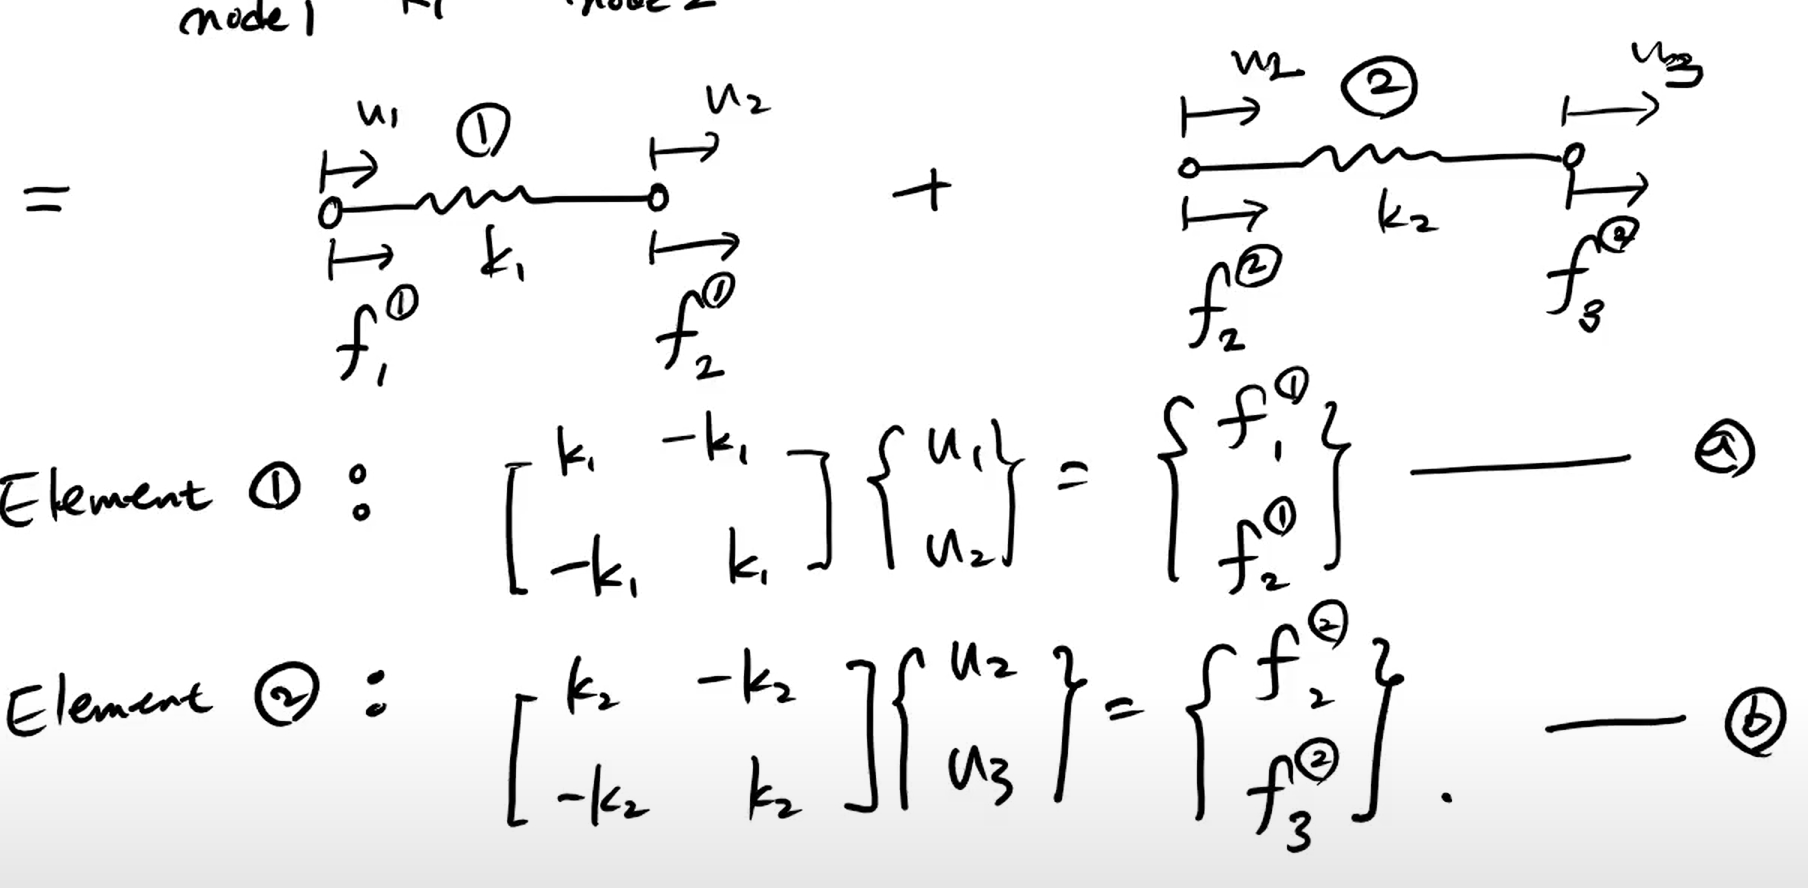 node 1 k1 node 2
u1 ① u2 u2 ② u3
= k1 + k2
f1^① f2^① f2^② f3^②
Element ① : [ k1 -k1 ; -k1 k1 ] { u1 ; u2 } = { f1^① ; f2^① } —— ⓐ
Element ② : [ k2 -k2 ; -k2 k2 ] { u2 ; u3 } = { f2^② ; f3^② } . —— ⓑ